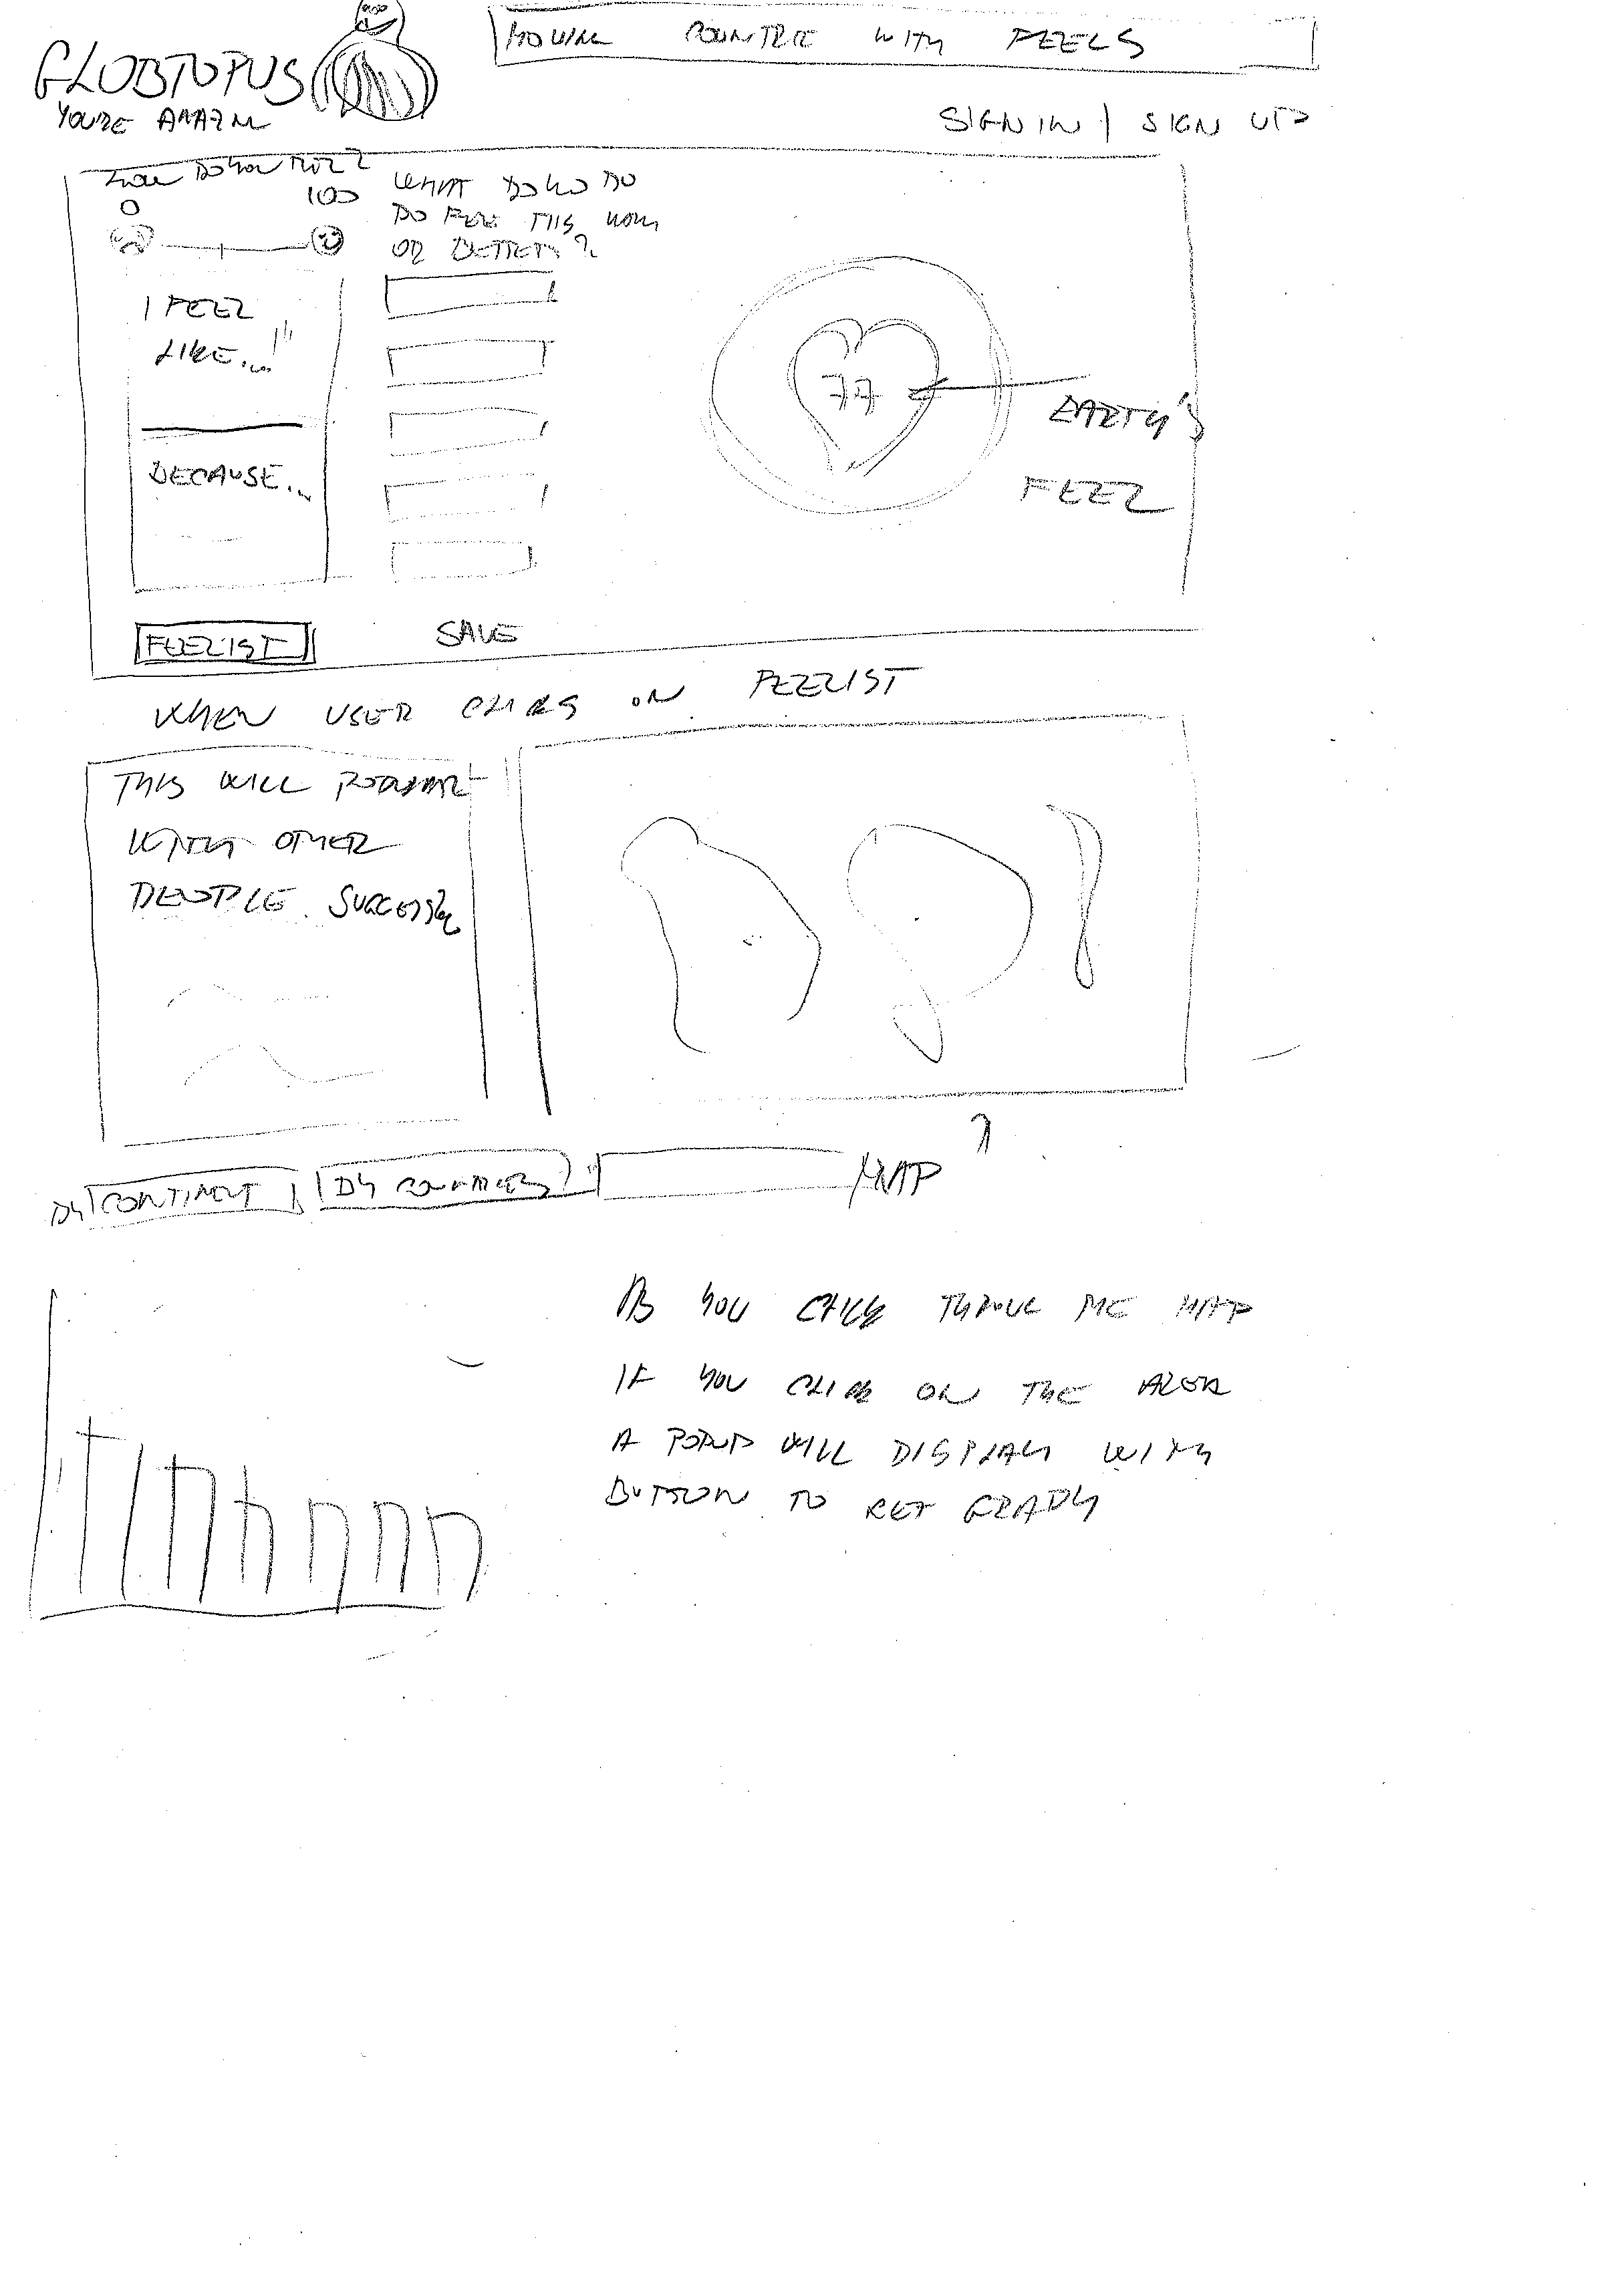 GLOBTOPUS
YOU'RE AMAZN
MOVING COUNTRIE WITH FEELS
SIGN IN | SIGN UP
HOW DO YOU FEEL?
0 100
WHAT DO YOU DO
TO FEEL THIS WAY
OR BETTER?
I FEEL
LIKE...!!!
BECAUSE...
77
EARTH'S
FEEL
FEELIST
SAVE
WHEN USER CLICKS ON FEELIST
THIS WILL
WITH OTHER
PEOPLE SUCCESS
BY CONTINENT
BY COUNTRIES?
MAP
?
AS YOU CLICK THROUG THE MAP
IF YOU CLICK ON THE AREA
A POPUP WILL DISPLAY WITH
BUTTON TO GET READY